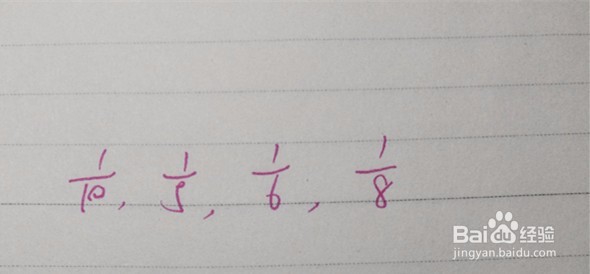 1/10, 1/5, 1/6, 1/8
Baidu经验
jingyan.baidu.com